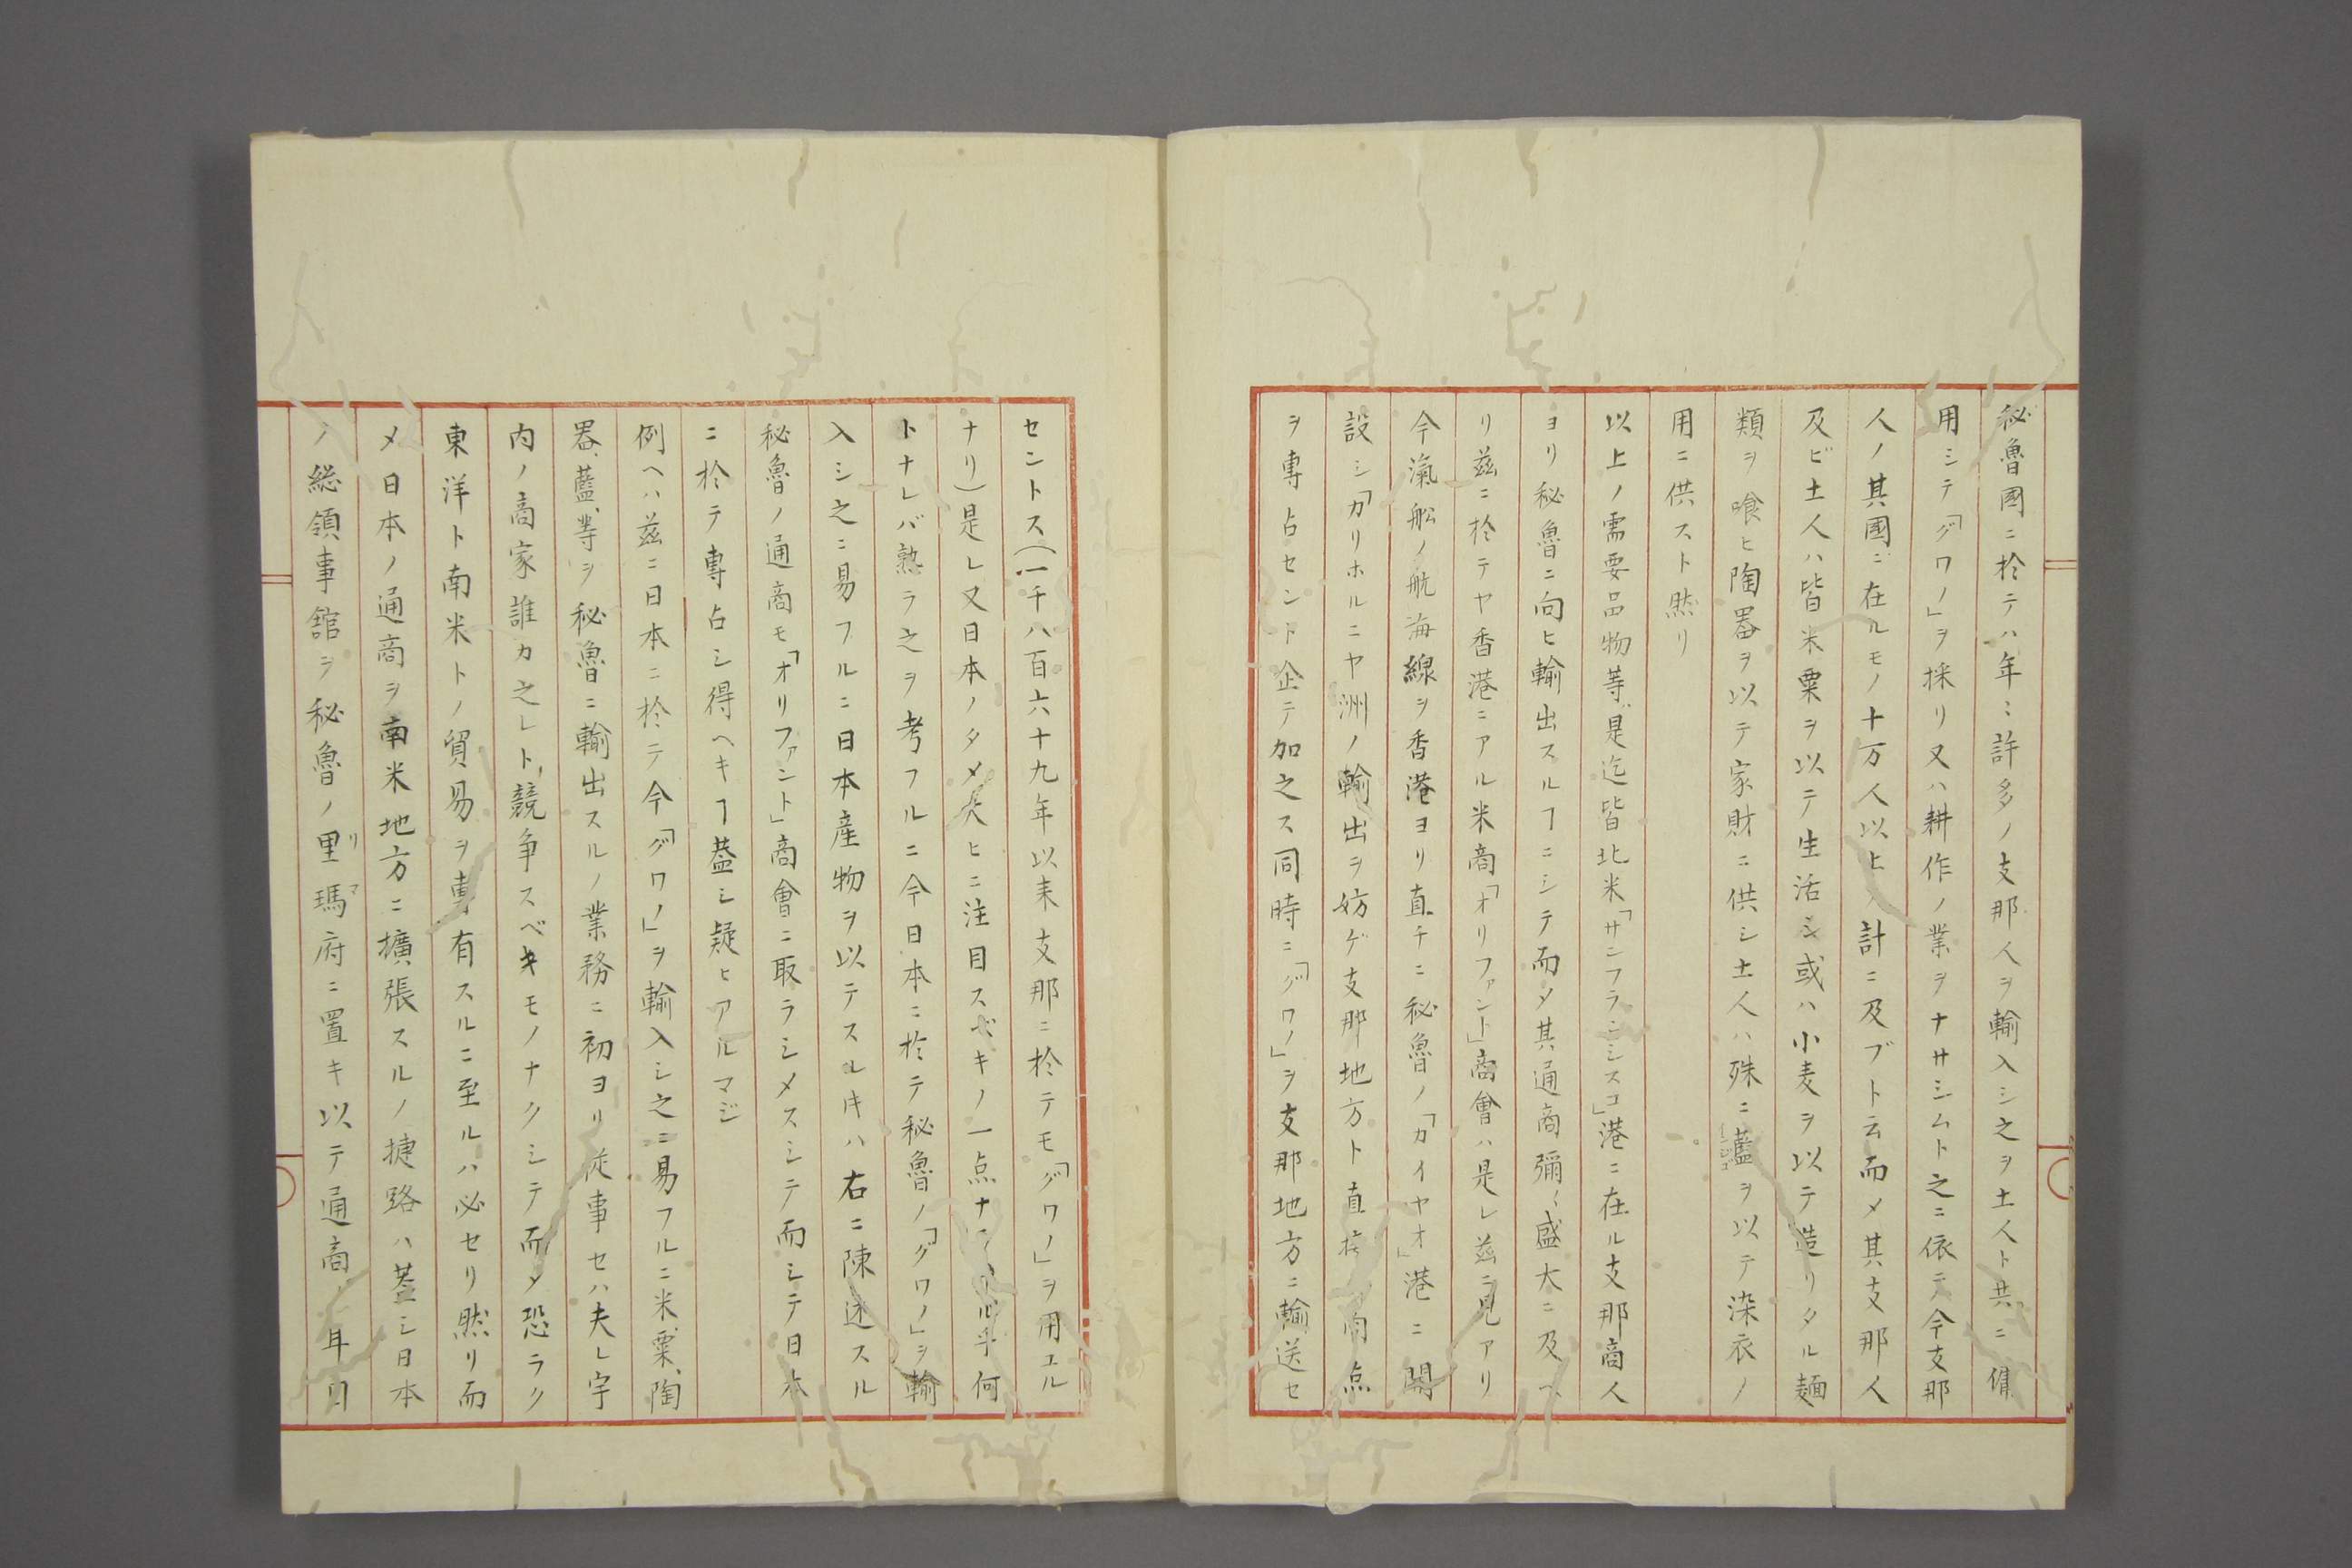 秘魯國ニ於テハ年〻許多ノ支那人ヲ輸入シ之ヲ土人ト共ニ傭
用シテ「グワノ」ヲ採リ又ハ耕作ノ業ヲナサシムト之ニ依テ今支那
人ノ其國ニ在ルモノ十万人以上ノ計ニ及ブト云而メ其支那人
及ビ土人ハ皆米粟ヲ以テ生活シ或ハ小麦ヲ以テ造リタル麺
類ヲ喰ヒ陶器ヲ以テ家財ニ供シ土人ハ殊ニ藍ヲ以テ染衣ノ
用ニ供スト然リ
以上ノ需要品物等是迄皆北米「サンフランシスコ」港ニ在ル支那商人
ヨリ秘魯ニ向ヒ輸出スルヿニシテ而メ其通商彌〻盛大ニ及ヘ
リ茲ニ於テヤ香港ニアル米商「オリファント」商會ハ是レ茲ニ見アリ
今滊舩ノ航海線ヲ香港ヨリ直チニ秘魯ノ「カイヤオ」港ニ開
設シ「カリホルニヤ洲ノ輸出ヲ妨ゲ支那地方ト直接ノ商点
ヲ専占セント企テ加之ス同時ニ「グワノ」ヲ支那地方ニ輸送セ
セントス(一千八百六十九年以来支那ニ於テモ「グワノ」ヲ用エル
ナリ)是レ又日本ノタメ大ヒニ注目スベキノ一点ナ 乎何
トナレバ熟ラ之ヲ考フルニ今日本ニ於テ秘魯ノ「グワノ」ヲ輸
入シ之ニ易フルニ日本産物ヲ以テスルキハ右ニ陳述スル
秘魯ノ通商モ「オリファント」商會ニ取ラシメスシテ而シテ日本
ニ於テ専占シ得ヘキヿ蓋シ疑ヒアルマジ
例ヘハ茲ニ日本ニ於テ今「グワノ」ヲ輸入シ之ニ易フルニ米、粟、陶
器、藍、等ヲ秘魯ニ輸出スルノ業務ニ初ヨリ従事セハ夫レ宇
内ノ商家誰カ之レト競争スベキモノナクシテ而メ恐ラク
東洋ト南米トノ貿易ヲ専有スルニ至ルハ必セリ然リ而
メ日本ノ通商ヲ南米地方ニ擴張スルノ捷路ハ蓋シ日本
ノ総領事舘ヲ秘魯ノ里瑪府ニ置キ以テ通商ノ耳目